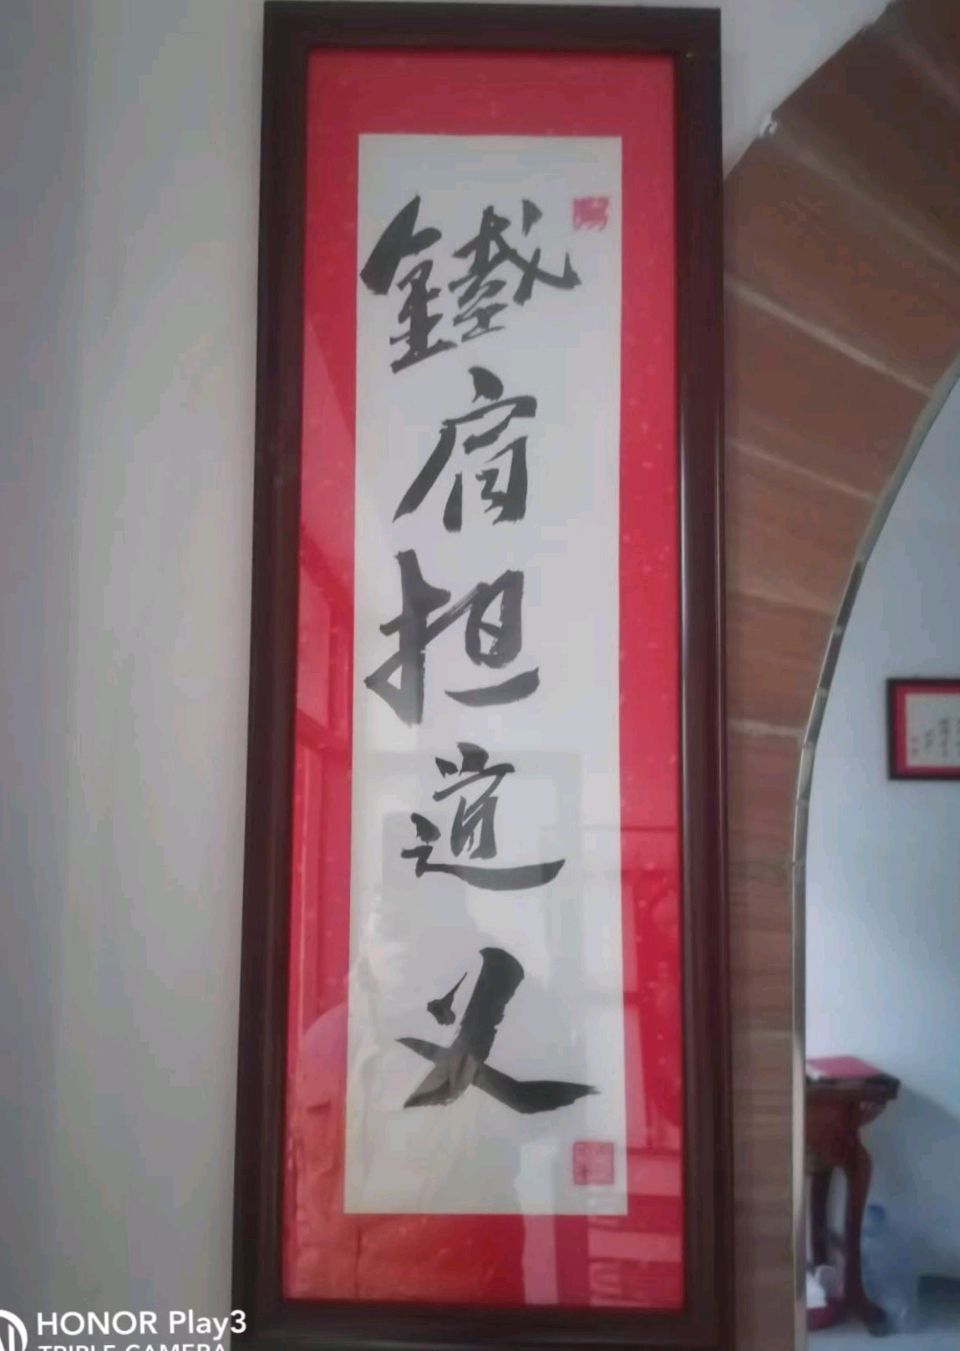 鐵肩担道义
HONOR Play3
TRIPLE CAMERA